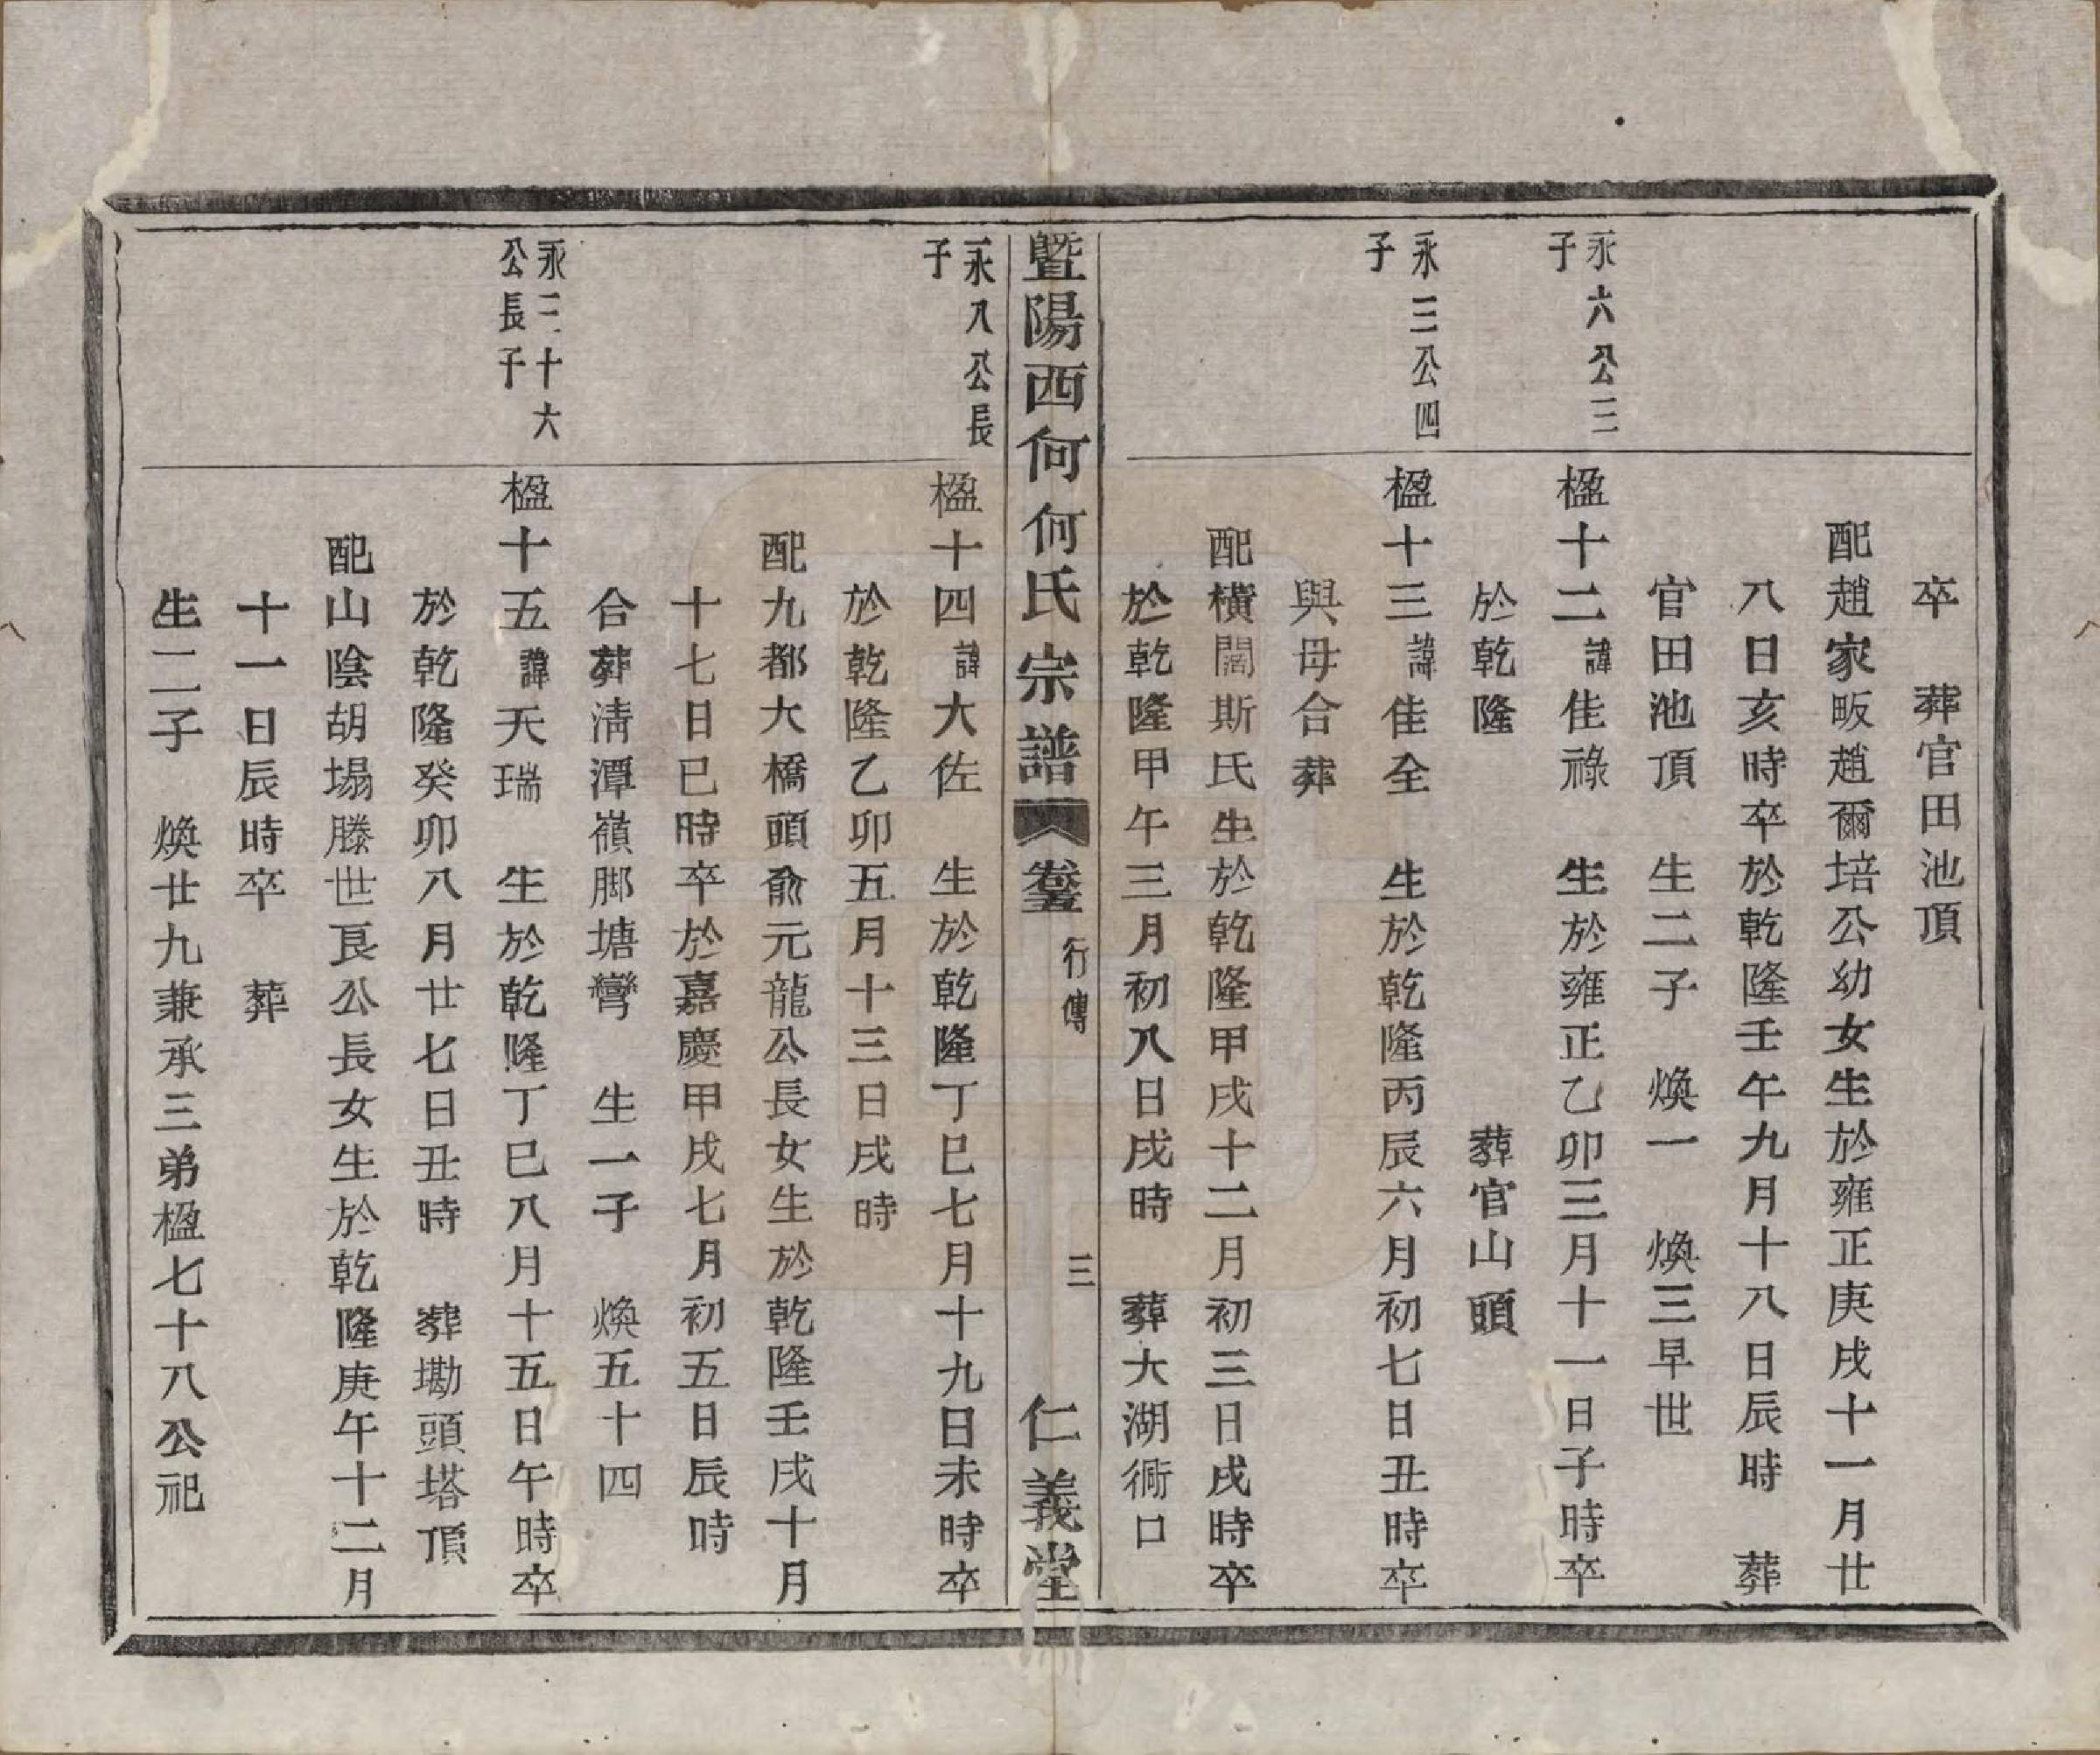 卒　葬官田池頂
配趙家畈趙爾培公幼女生於雍正庚戌十一月廿
八日亥時卒於乾隆壬午九月十八日辰時　葬
官田池頂　生二子　煥一　煥三早世
永六公三
子
楹十二諱佳祿　生於雍正乙卯三月十一日子時卒
於乾隆　葬官山頭
永三公四
子
楹十三諱佳全　生於乾隆丙辰六月初七日丑時卒
與母合葬
配橫闊斯氏生於乾隆甲戌十二月初三日戌時卒
於乾隆甲午三月初八日戌時　葬大湖衕口
暨陽西何何氏宗譜　卷五　行傳　三　仁義堂
永八公長
子
楹十四諱大佐　生於乾隆丁巳七月十九日未時卒
於乾隆乙卯五月十三日戌時
配九都大橋頭俞元龍公長女生於乾隆壬戌十月
十七日巳時卒於嘉慶甲戌七月初五日辰時
合葬淸潭嶺脚塘彎　生一子　煥五十四
永二十六
公長子
楹十五諱天瑞　生於乾隆丁巳八月十五日午時卒
於乾隆癸卯八月廿七日丑時　葬墈頭塔頂
配山陰胡塲滕世良公長女生於乾隆庚午十二月
十一日辰時卒　葬
生二子　煥廿九兼承三弟楹七十八公祀